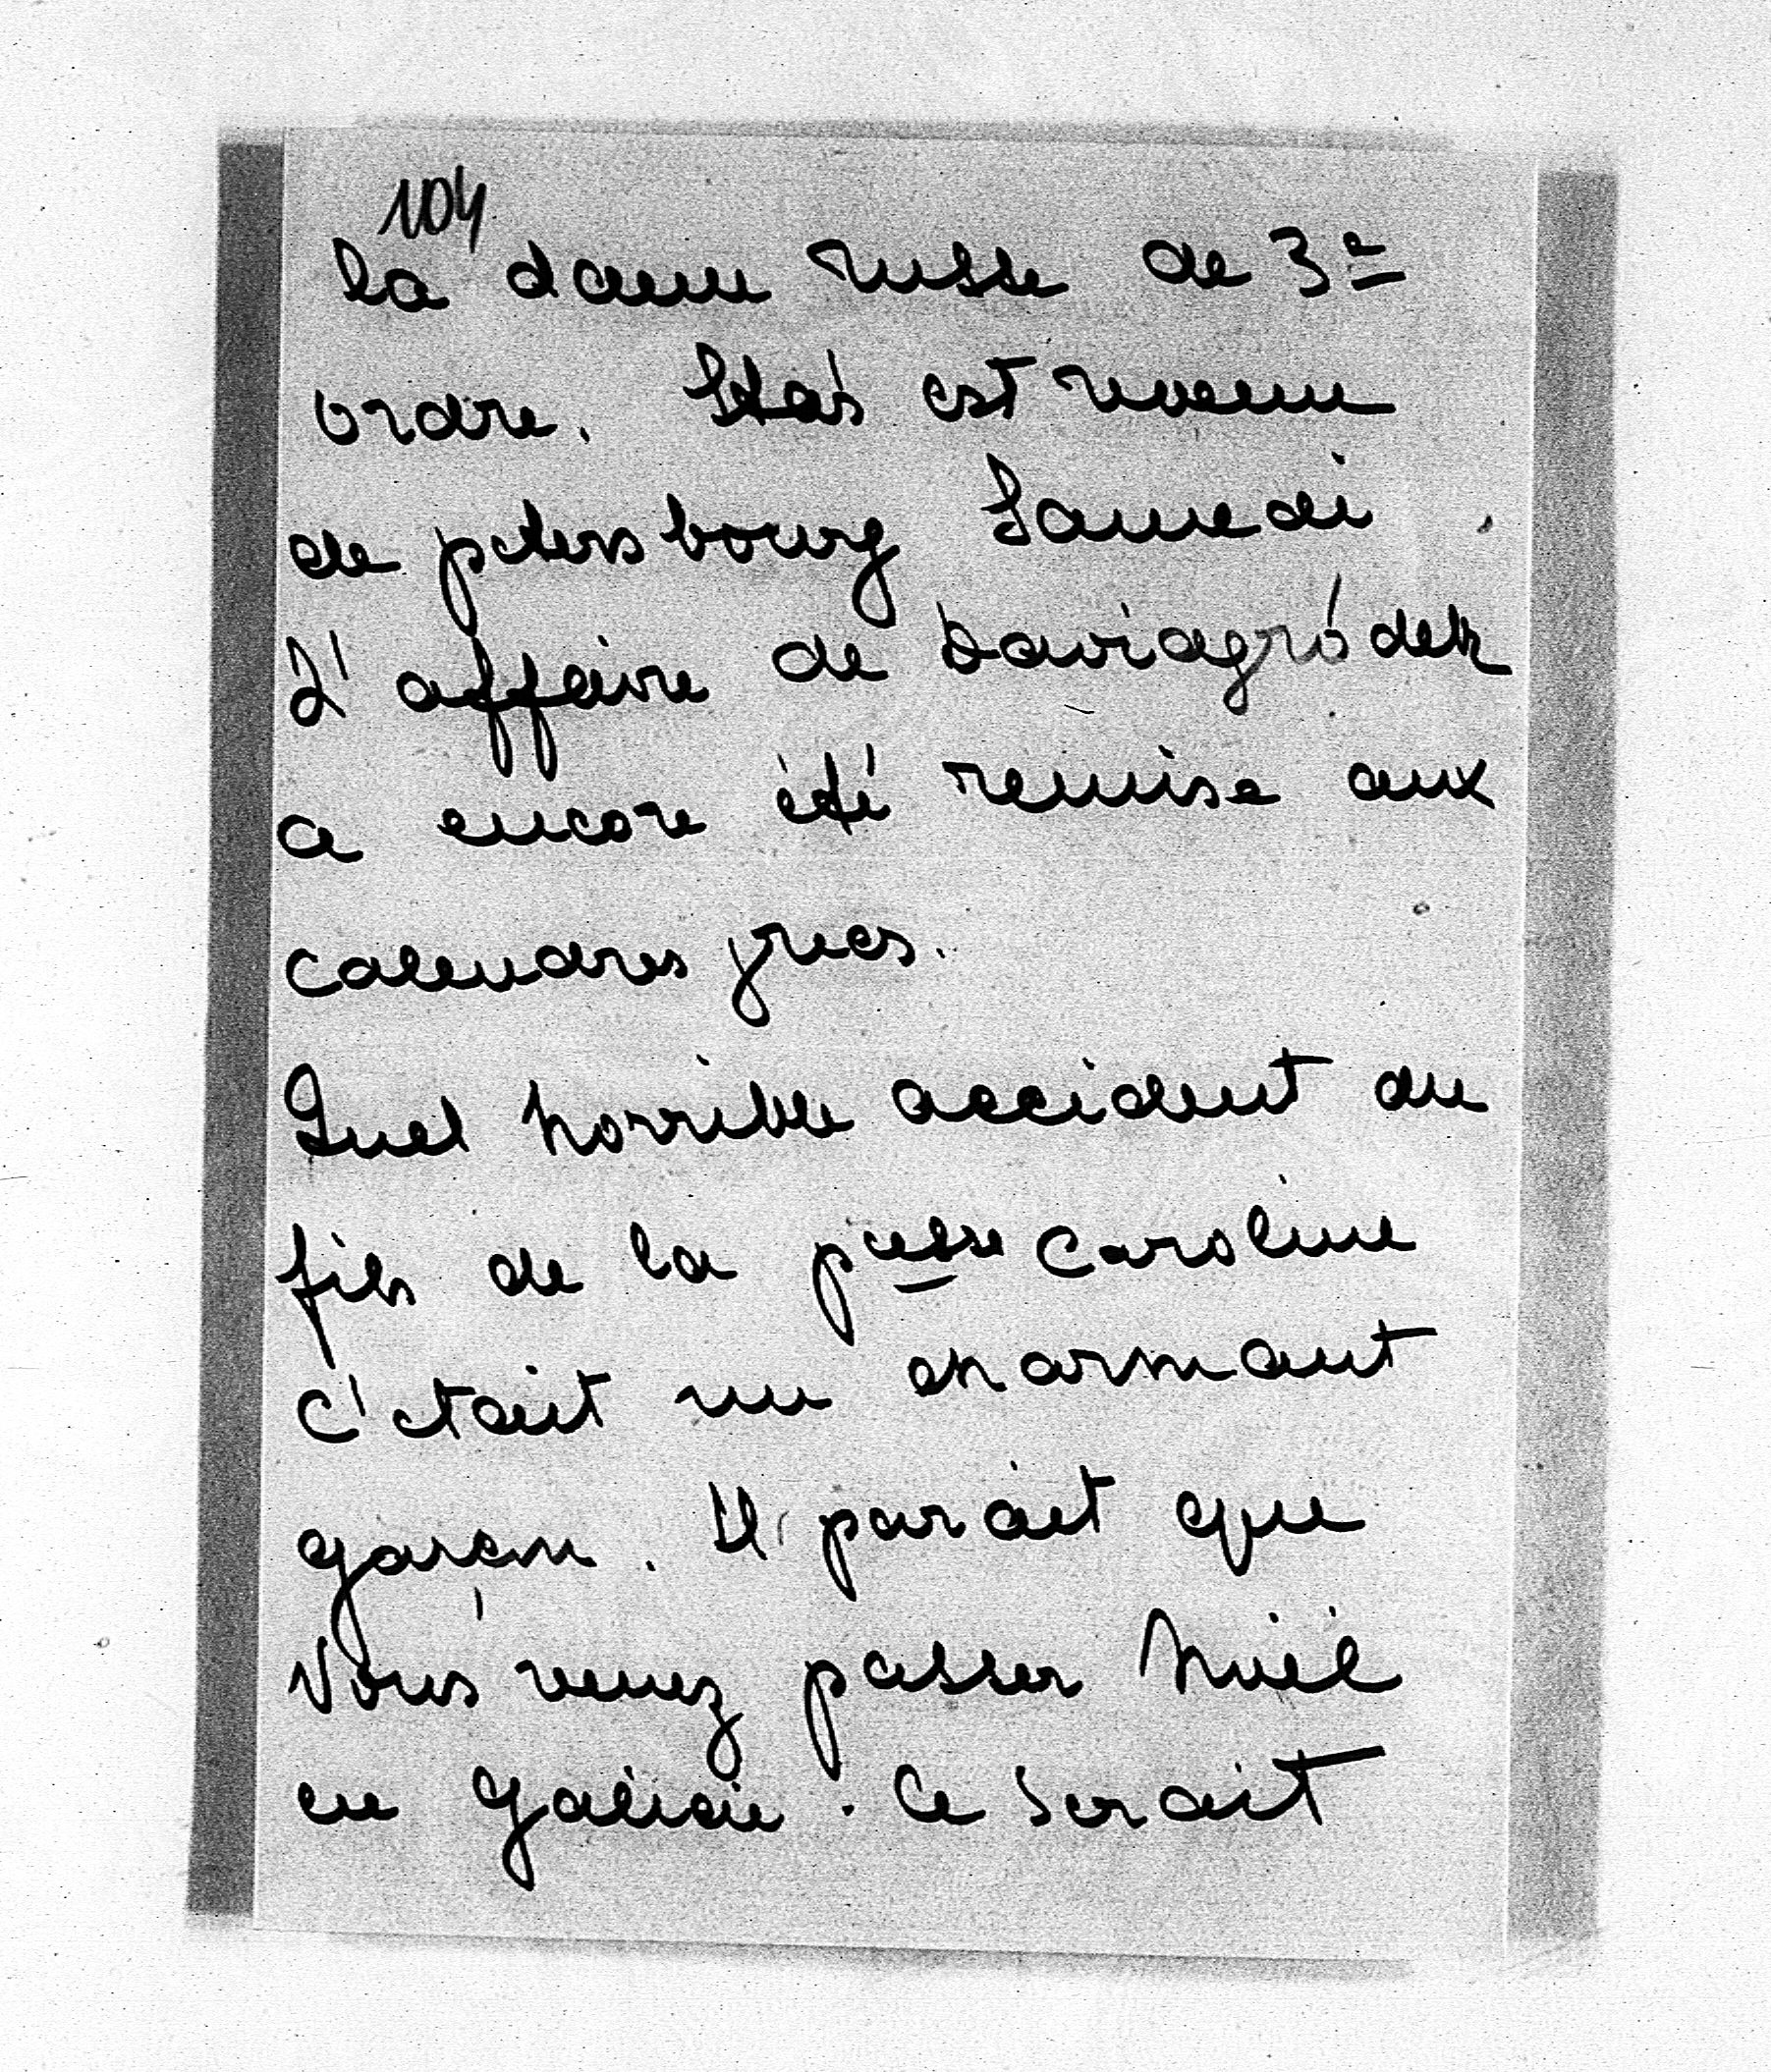 104
la dame russe de 3e
ordre. Staś est revenu
de petersbourg Samedi.
L'affaire de Daviagródek
a encore été remise aux
calendres grecs.
Quel horrible accident du
fils de la pcesse Caroline
c'etait un charmant
garçon. Il parait que
Vous venez passer Nuël
en Galicie. Ce serait